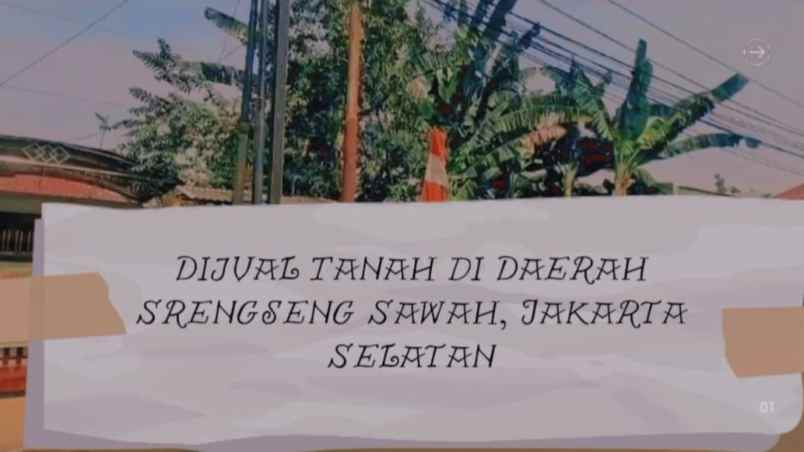 DIJUAL TANAH DI DAERAH
SRENGSENG SAWAH, JAKARTA
SELATAN
01